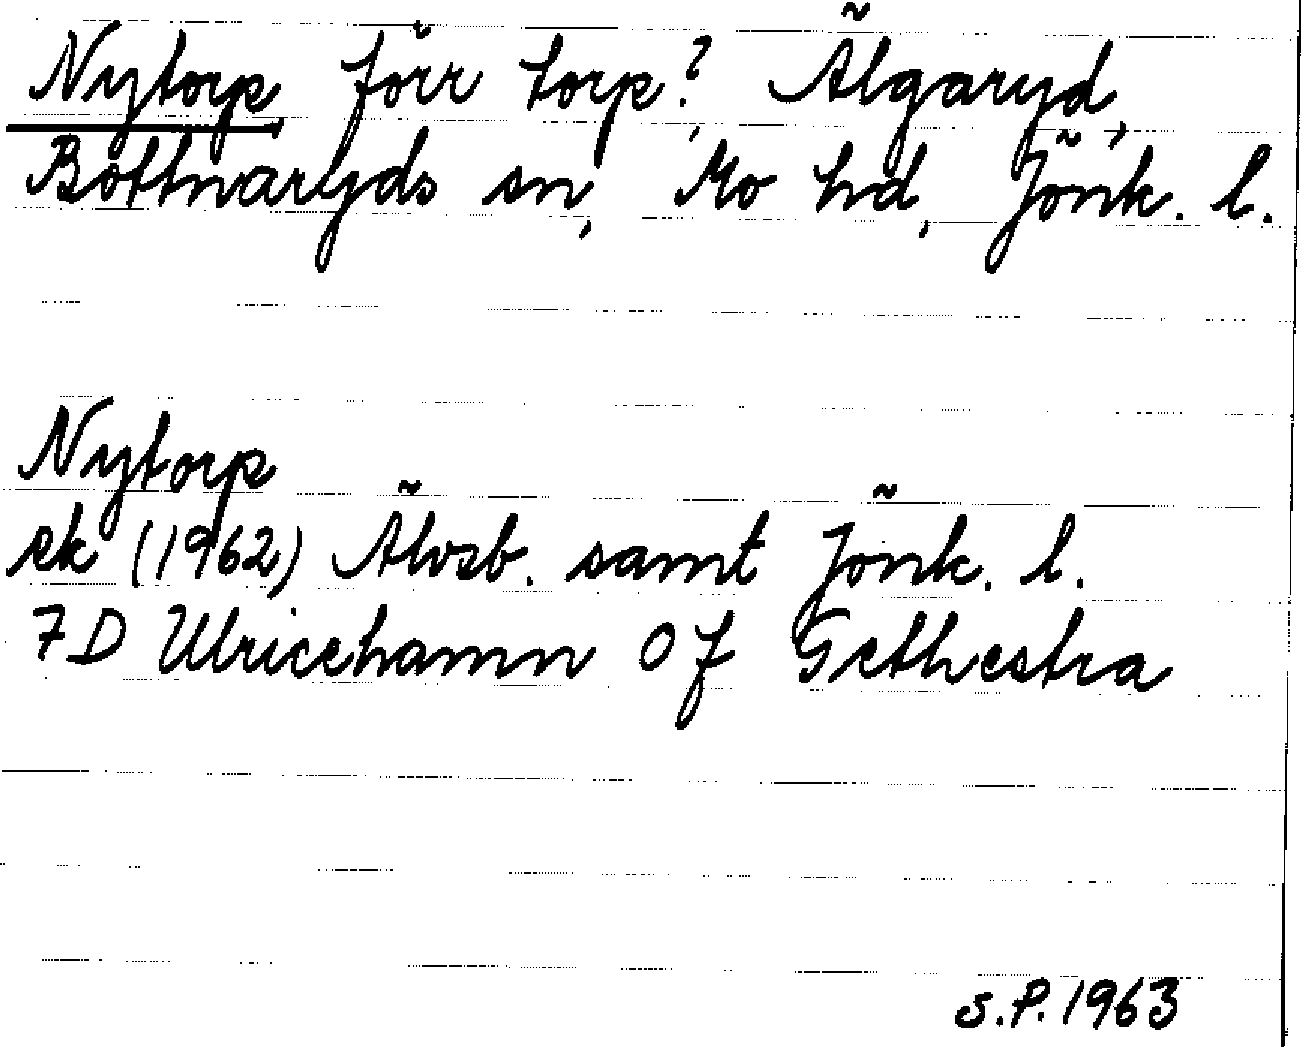 Nytorp förr torp?, Älgaryd,
Bottnaryds sn, Mo hd, Jönk. l.
Nytorp
ek (1962) Älvsb. samt Jönk. l.
7D Ulricehamn 0f Gethestra
S.P. 1963